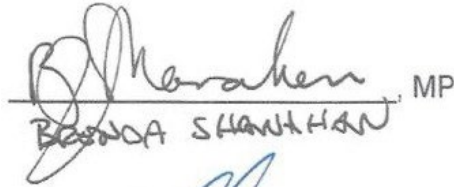 B Shanahan, MP
BRENDA SHANAHAN